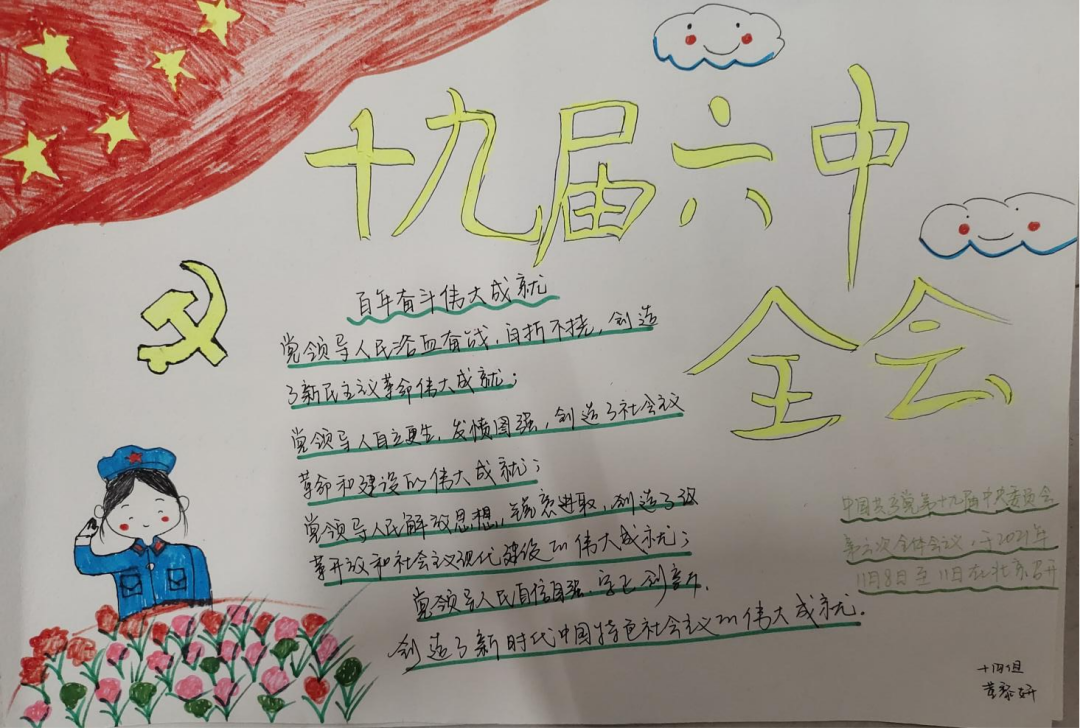 十九届六中
全会
百年奋斗伟大成就
党领导人民浴血奋战，百折不挠，创造
了新民主主义革命伟大成就；
党领导人自立更生，发愤图强，创造了社会主义
革命和建设的伟大成就；
党领导人民解放思想，锐意进取，创造了改
革开放和社会主义现代建设的伟大成就；
党领导人民自信自强、守正创新，
创造了新时代中国特色社会主义的伟大成就．
中国共产党第十九届中央委员会
第六次全体会议，于2021年
11月8日至11日在北京召开
十四组
黎妍